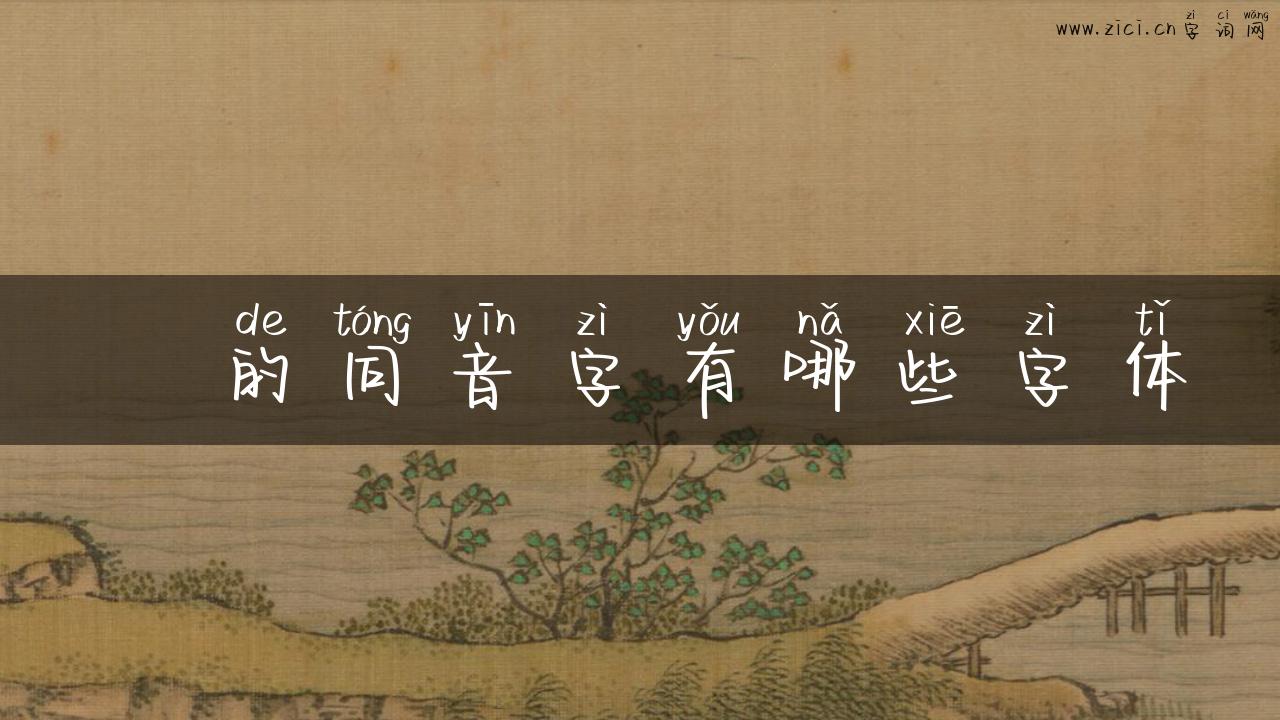 zì cí wǎng
www.zici.cn 字词网
de tóng yīn zì yǒu nǎ xiē zì tǐ
的同音字有哪些字体